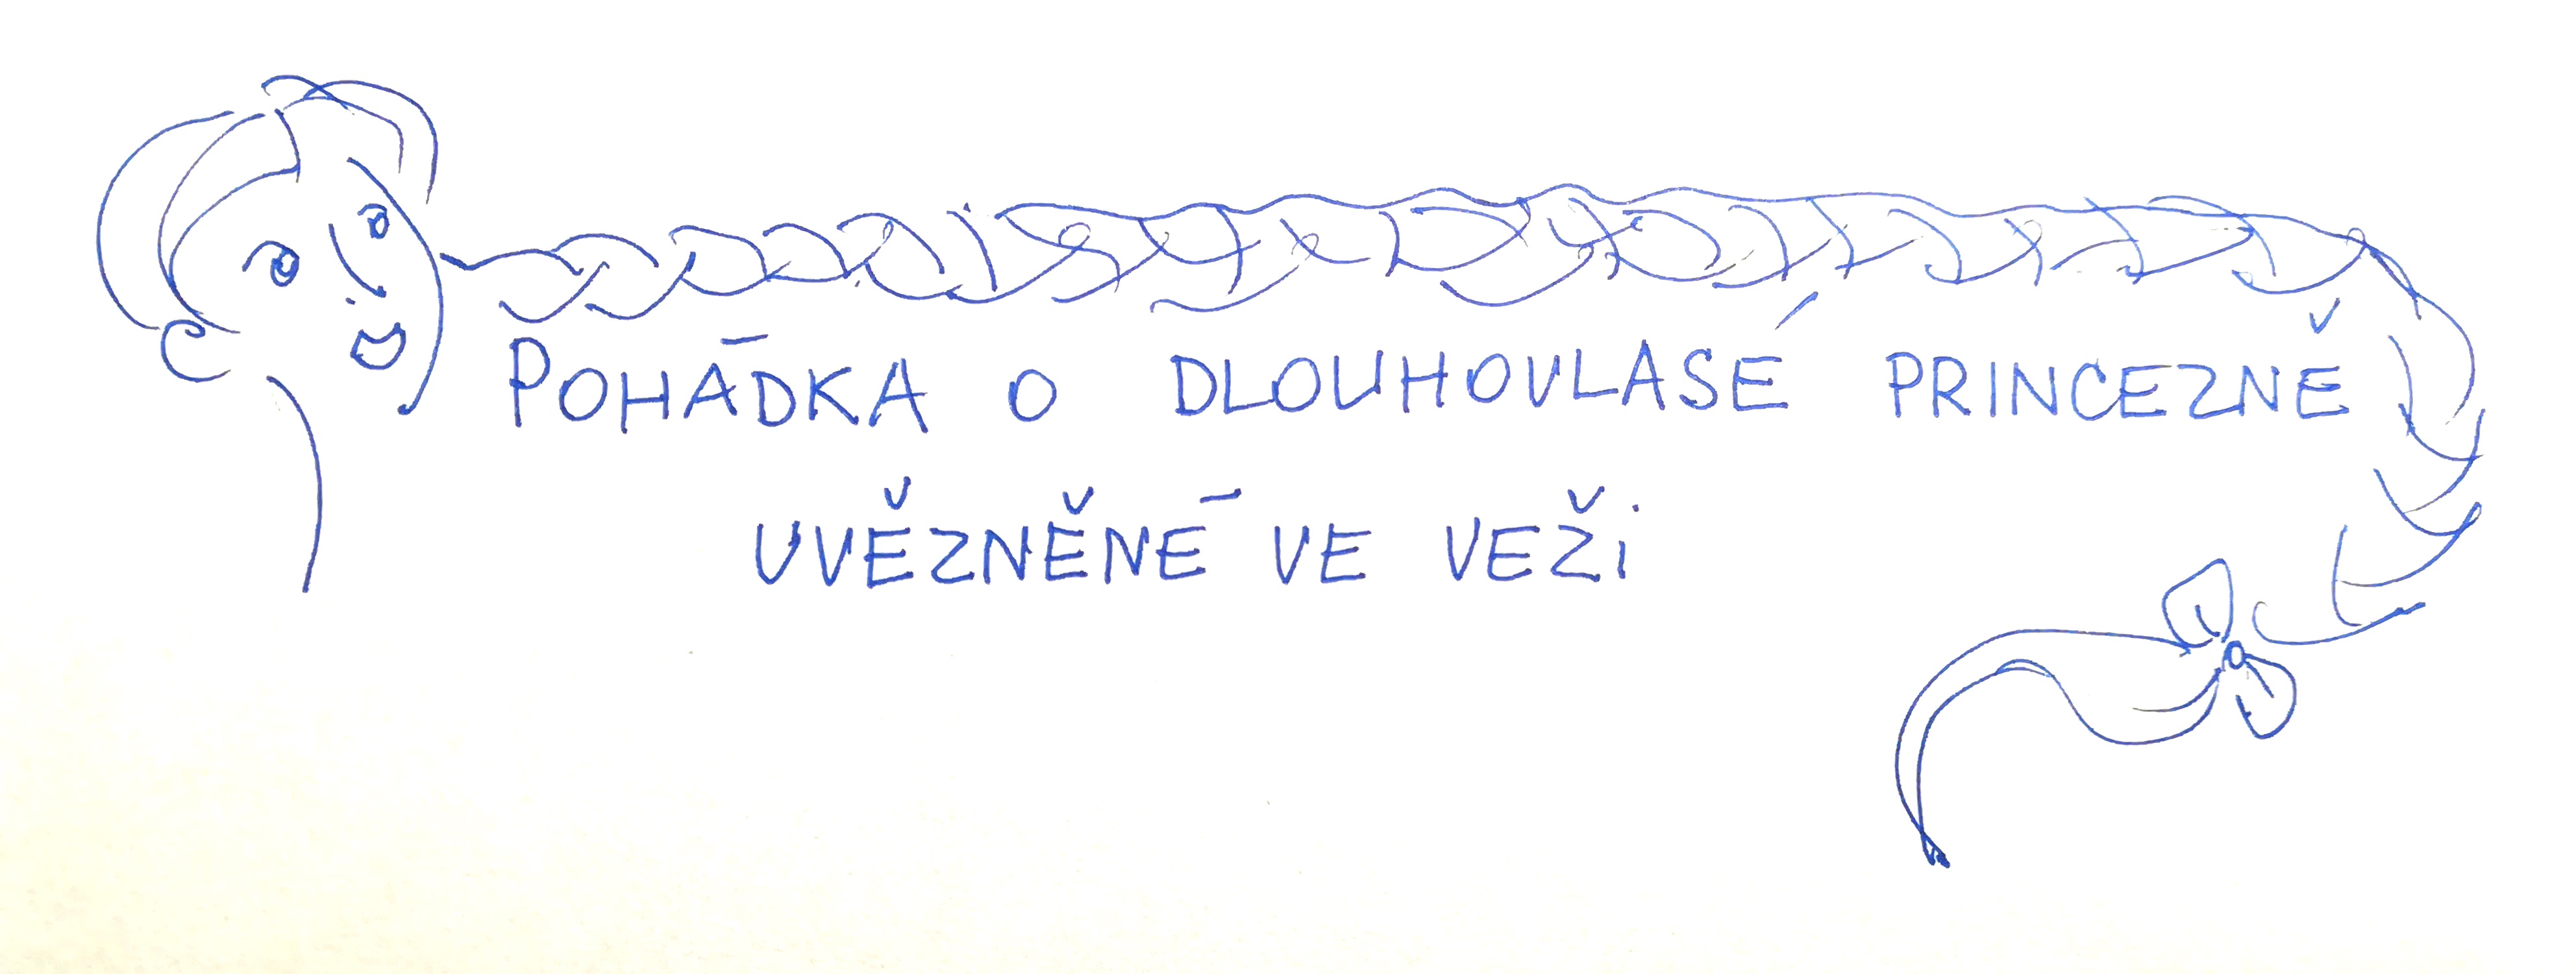 POHÁDKA O DLOUHOVLASÉ PRINCEZNĚ
UVĚZNĚNÉ VE VEŽI